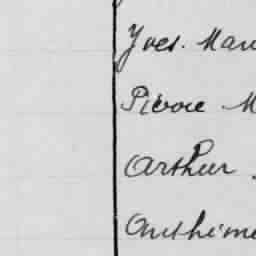 Yves. Mar
Pierre M
Arthur
Anthime